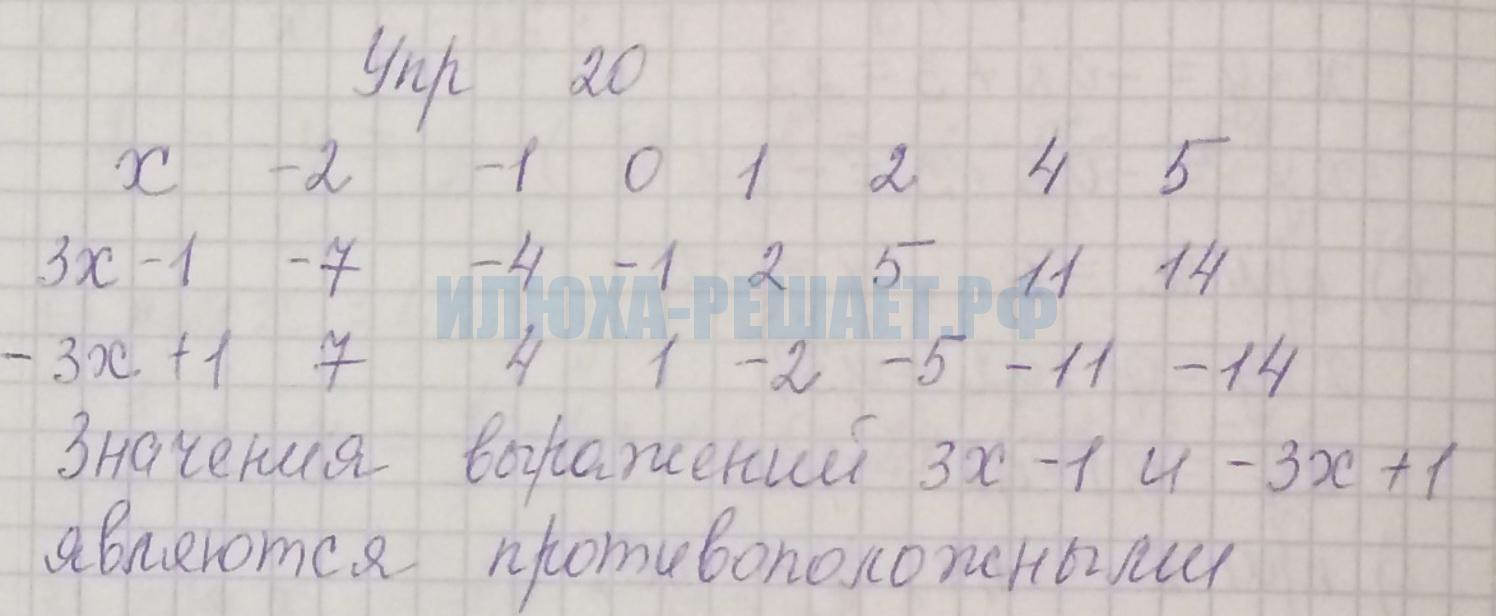 Упр 20
x -2 -1 0 1 2 4 5
3x -1 -7 -4 -1 2 5 11 14
ИЛЮХА-РЕШАЕТ.РФ
-3x +1 7 4 1 -2 -5 -11 -14
Значения выражений 3x -1 и -3x +1
являются противоположными